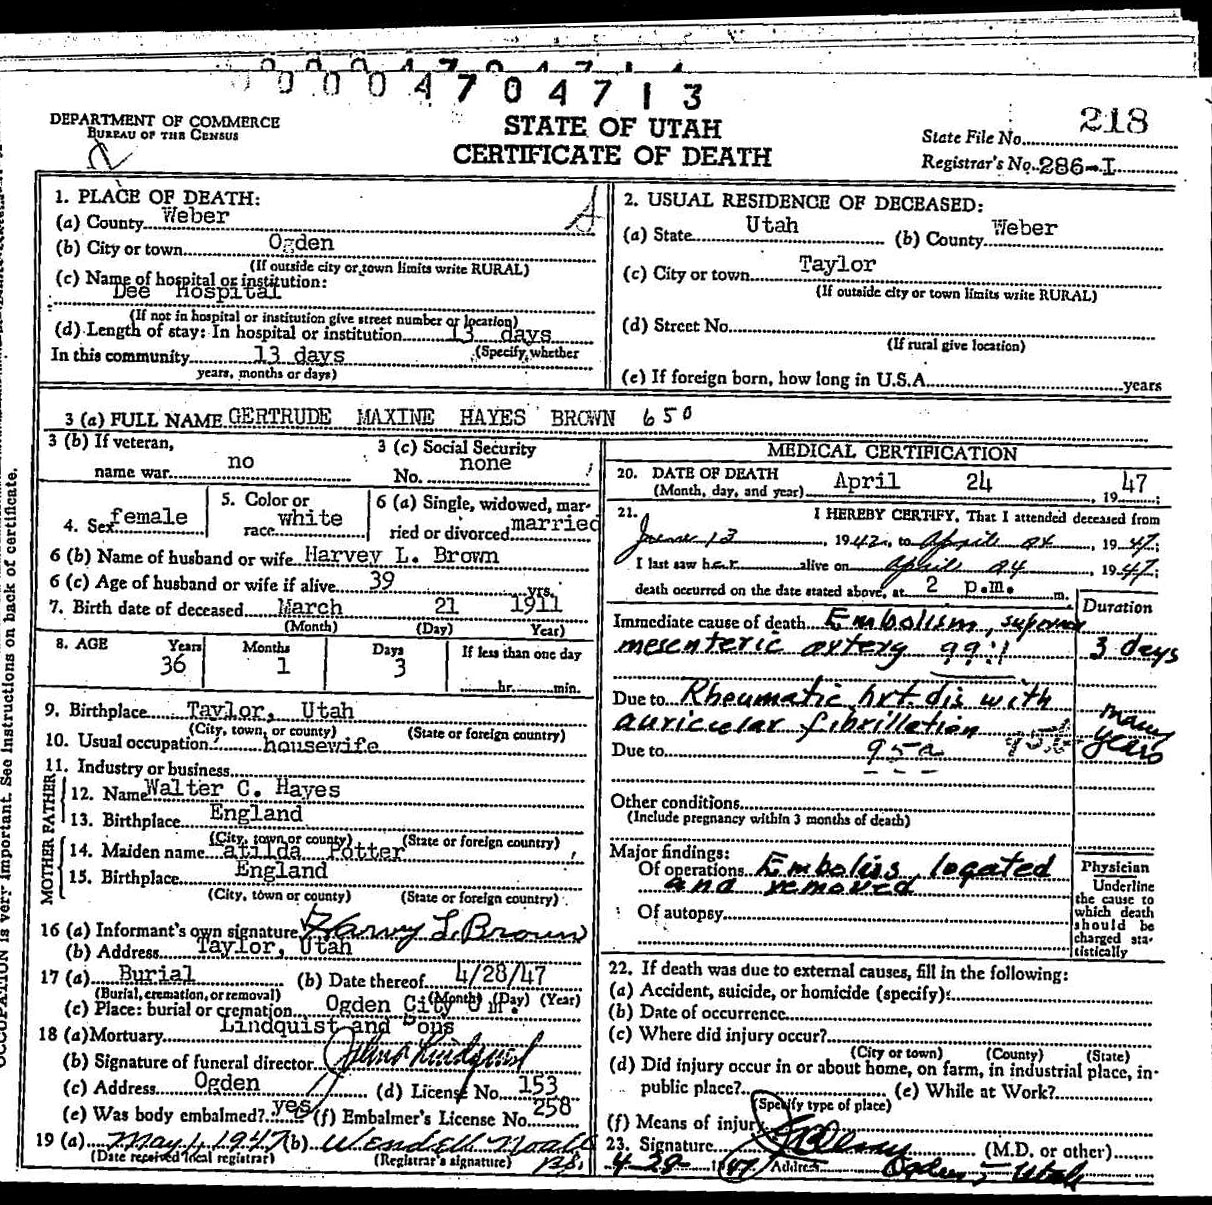 0 0 0 4 7 0 4 7 1 3
DEPARTMENT OF COMMERCE
BUREAU OF THE CENSUS
STATE OF UTAH
CERTIFICATE OF DEATH
218
State File No.
Registrar's No. 286-I
1. PLACE OF DEATH:
(a) County Weber
(b) City or town Ogden
(If outside city or town limits write RURAL)
(c) Name of hospital or institution:
Dee Hospital
(If not in hospital or institution give street number or location)
(d) Length of stay: In hospital or institution 13 days
(Specify whether
In this community 13 days
years, months or days)
2. USUAL RESIDENCE OF DECEASED:
(a) State Utah (b) County Weber
(c) City or town Taylor
(If outside city or town limits write RURAL)
(d) Street No.
(If rural give location)
(e) If foreign born, how long in U.S.A. years
3 (a) FULL NAME GERTRUDE MAXINE HAYES BROWN 650
3 (b) If veteran,
name war no
3 (c) Social Security
No. none
4. Sex female
5. Color or
race white
6 (a) Single, widowed, mar-
ried or divorced married
6 (b) Name of husband or wife Harvey L. Brown
6 (c) Age of husband or wife if alive 39 yrs.
7. Birth date of deceased March 21 1911
(Month) (Day) Year)
8. AGE Years Months Days If less than one day
36 1 3 hr. min.
9. Birthplace Taylor, Utah
(City, town, or county) (State or foreign country)
10. Usual occupation housewife
11. Industry or business
FATHER
12. Name Walter C. Hayes
13. Birthplace England
(City, town or county) (State or foreign country)
MOTHER
14. Maiden name atilda Potter
15. Birthplace England
(City, town or county) (State or foreign country)
16 (a) Informant's own signature Harvy L. Brown
(b) Address Taylor, Utah
17 (a) Burial (b) Date thereof 4/28/47
(Burial, cremation, or removal) (Month) (Day) (Year)
(c) Place: burial or cremation Ogden City
18 (a) Mortuary Lindquist and Sons
(b) Signature of funeral director John Lindquist
(c) Address Ogden (d) License No. 153
(e) Was body embalmed? yes (f) Embalmer's License No. 258
19 (a) May 1, 1947 (b) Wendell Noall
(Date received local registrar) (Registrar's signature)
MEDICAL CERTIFICATION
20. DATE OF DEATH
(Month, day, and year) April 24, 1947;
21. I HEREBY CERTIFY, That I attended deceased from
June 13, 1942, to April 24, 1947;
I last saw her alive on April 24, 1947;
death occurred on the date stated above, at 2 p.m. m.
Duration
Immediate cause of death Embolism, superior
mesenteric artery 3 days
Due to Rheumatic hrt. dis with
auricular fibrillation many years
Due to 95a 95b
Other conditions
(Include pregnancy within 3 months of death)
Major findings:
Of operations Embolus located
and removed
Of autopsy
Physician
Underline
the cause to
which death
should be
charged sta-
tistically
22. If death was due to external causes, fill in the following:
(a) Accident, suicide, or homicide (specify)
(b) Date of occurrence
(c) Where did injury occur?
(City or town) (County) (State)
(d) Did injury occur in or about home, on farm, in industrial place, in-
public place? (e) While at Work?
(Specify type of place)
(f) Means of injury
23. Signature (M.D. or other)
4-29- 1947 Address Ogden, Utah
OCCUPATION is very important. See instructions on back of certificate.